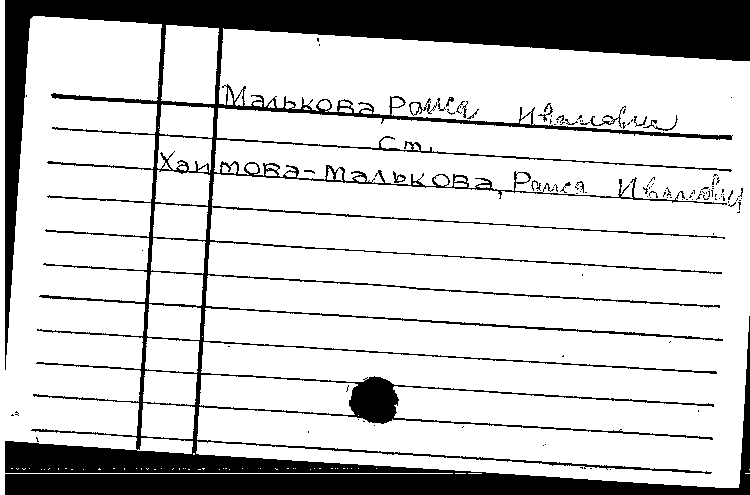 Малькова, Раиса Ивановна
см.
Хаимова-Малькова, Раиса Ивановна